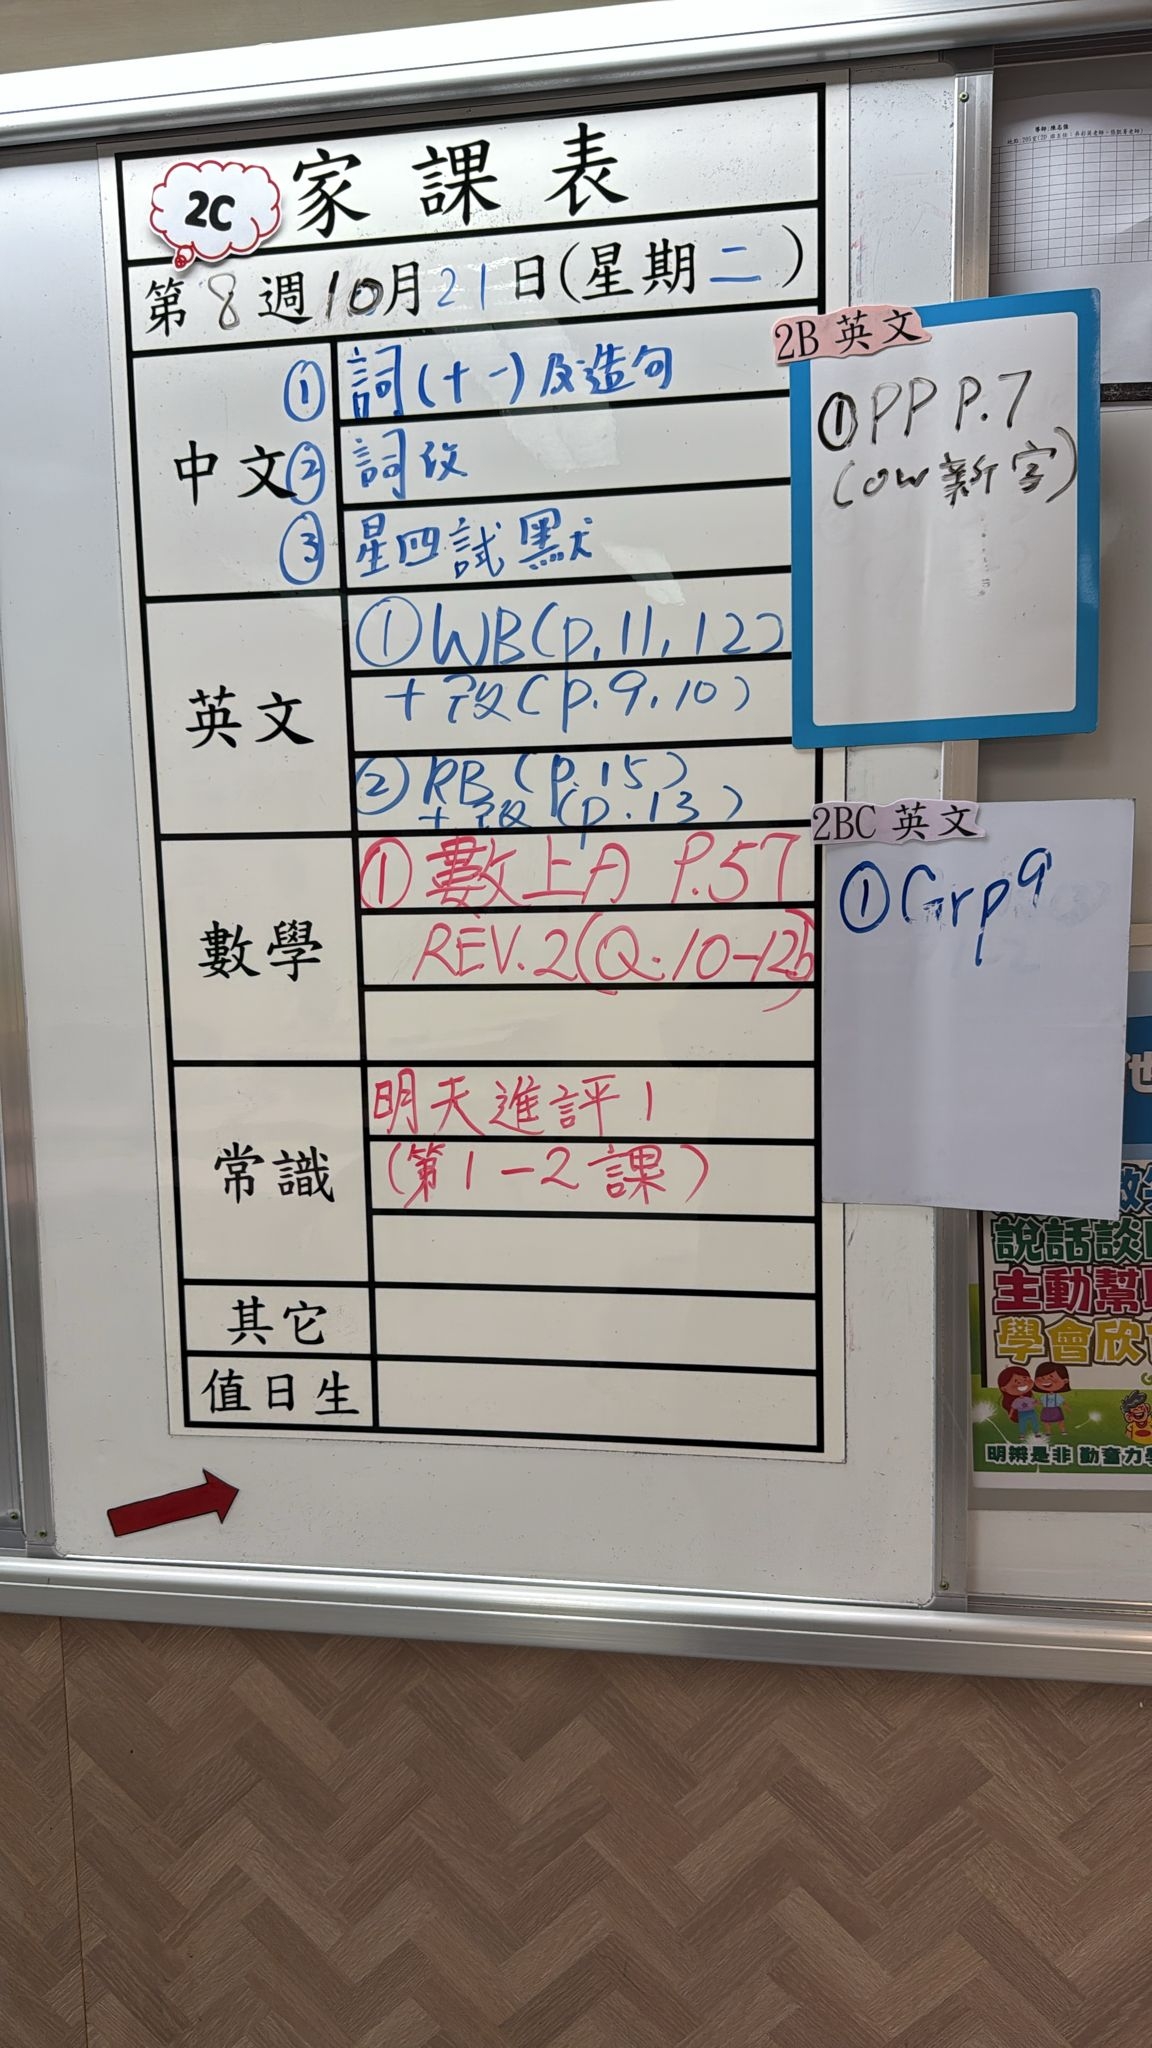 2C 家課表
第8週10月21日(星期二)
中文
① 詞(十一)及造句
② 詞改
③ 星四試默
英文
①WB(p.11,12)
+改(p.9,10)
②RB(p.15)
+改(p.13)
數學
①數上A P.57
REV.2(Q.10-12)
常識
明天進評1
(第1-2課)
其它
值日生
2B 英文
①PP P.7
(OW新字)
2BC 英文
①Grp9
說話談
主動幫
學會欣
明辨是非 勤奮力